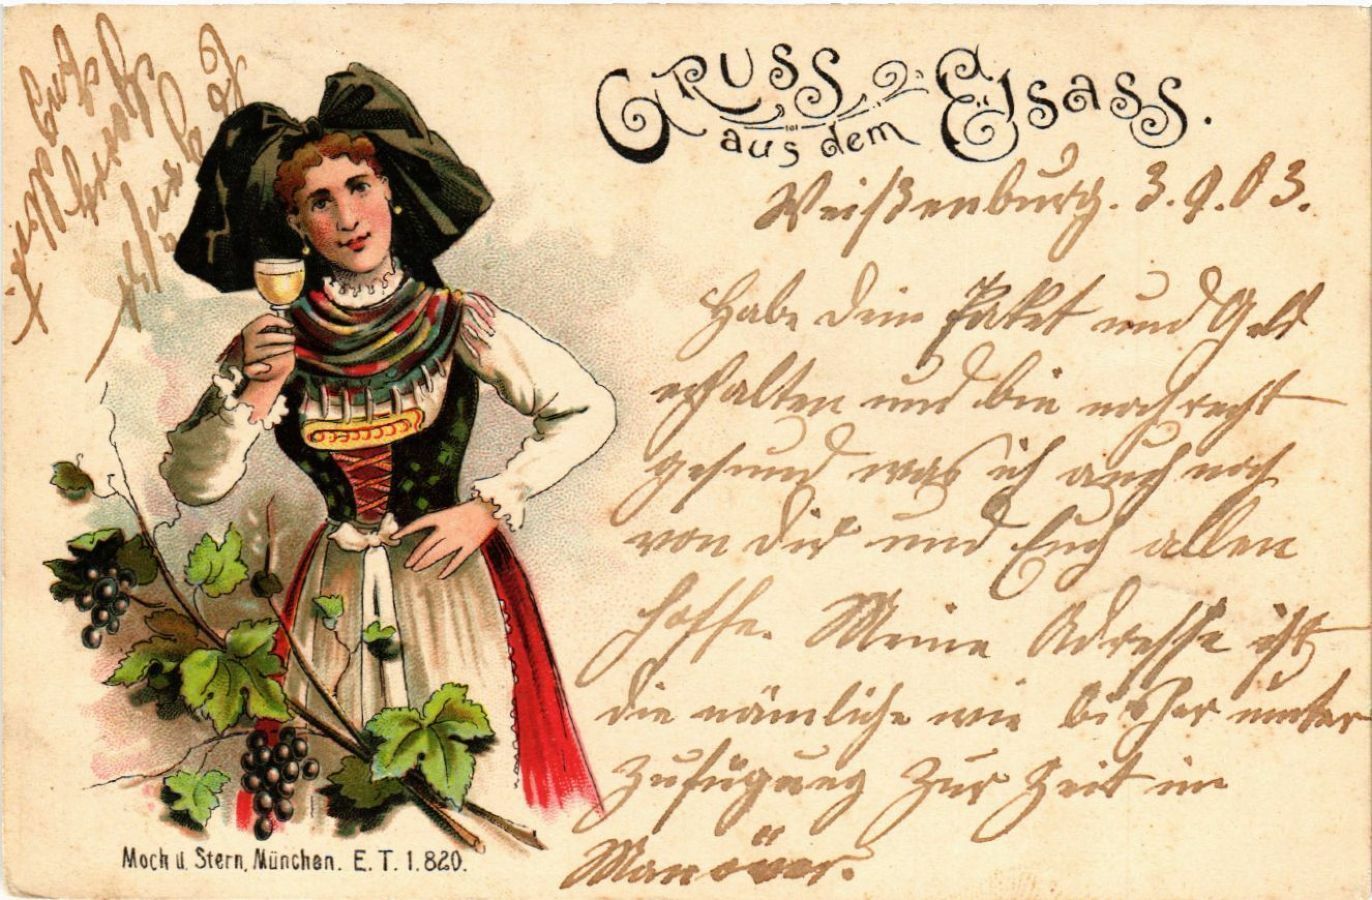 Gruss
aus dem Elsass.
Weißenburg. 3.9.03.
Habe dein Paket und Geld
erhalten und bin noch recht
gesund was ich auch noch
von dir und Euch allen
hoffe. Meine Adresse ist
die nämliche wie bisher unter
Zufügung zur Zeit im
Manöver.
Moch u. Stern, München. E. T. 1.820.